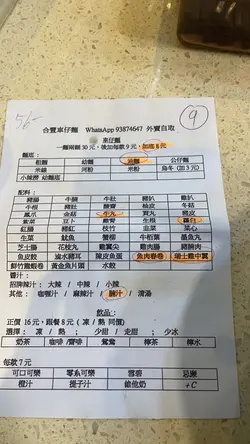 56-
9
合豐車仔麵 WhatsApp 93874647 外賣自取
車仔麵
一麵兩餸 30 元，後加每款 9 元，加底 8 元
麵底：
粗麵 幼麵 油麵 公仔麵
米線 河粉 米粉 烏冬 (加 3 元)
小辣撈 幼麵底
配料：
豬腸 牛腩 牛肚 雞翼 雞扒
牛柏 豬肚 豬皮
鳳爪 金菇 牛丸 貢丸 腐皮
紫菜 豆卜 生根 蘿白
紅腸 豬紅 枝竹 韭菜 菜心
生菜 魷魚 蟹柳 牛栢葉 墨魚丸
芝士腸 花枝丸 雞翼尖 雞肉腸
魚皮餃 滷水豬耳 陳皮魚蛋 魚肉春卷 瑞士雞中翼
鮮竹雞蝦卷 黃金魚片頭 水餃
醬汁：
招牌辣汁： 大辣 / 中辣 / 小辣
其他： 咖喱汁 / 麻辣汁 / 腩汁 / 清湯
飲品：
正價 16 元，跟餐 8 元 ( 凍 / 熱 同價)
選擇： 凍 / 熱 ； 少甜 / 走甜 ； 少冰
奶茶 咖啡/齋啡 鴛鴦 檸茶 檸水
每款 7 元
可口可樂 零系可樂 雪碧 忌廉
橙汁 提子汁 維他奶 +C